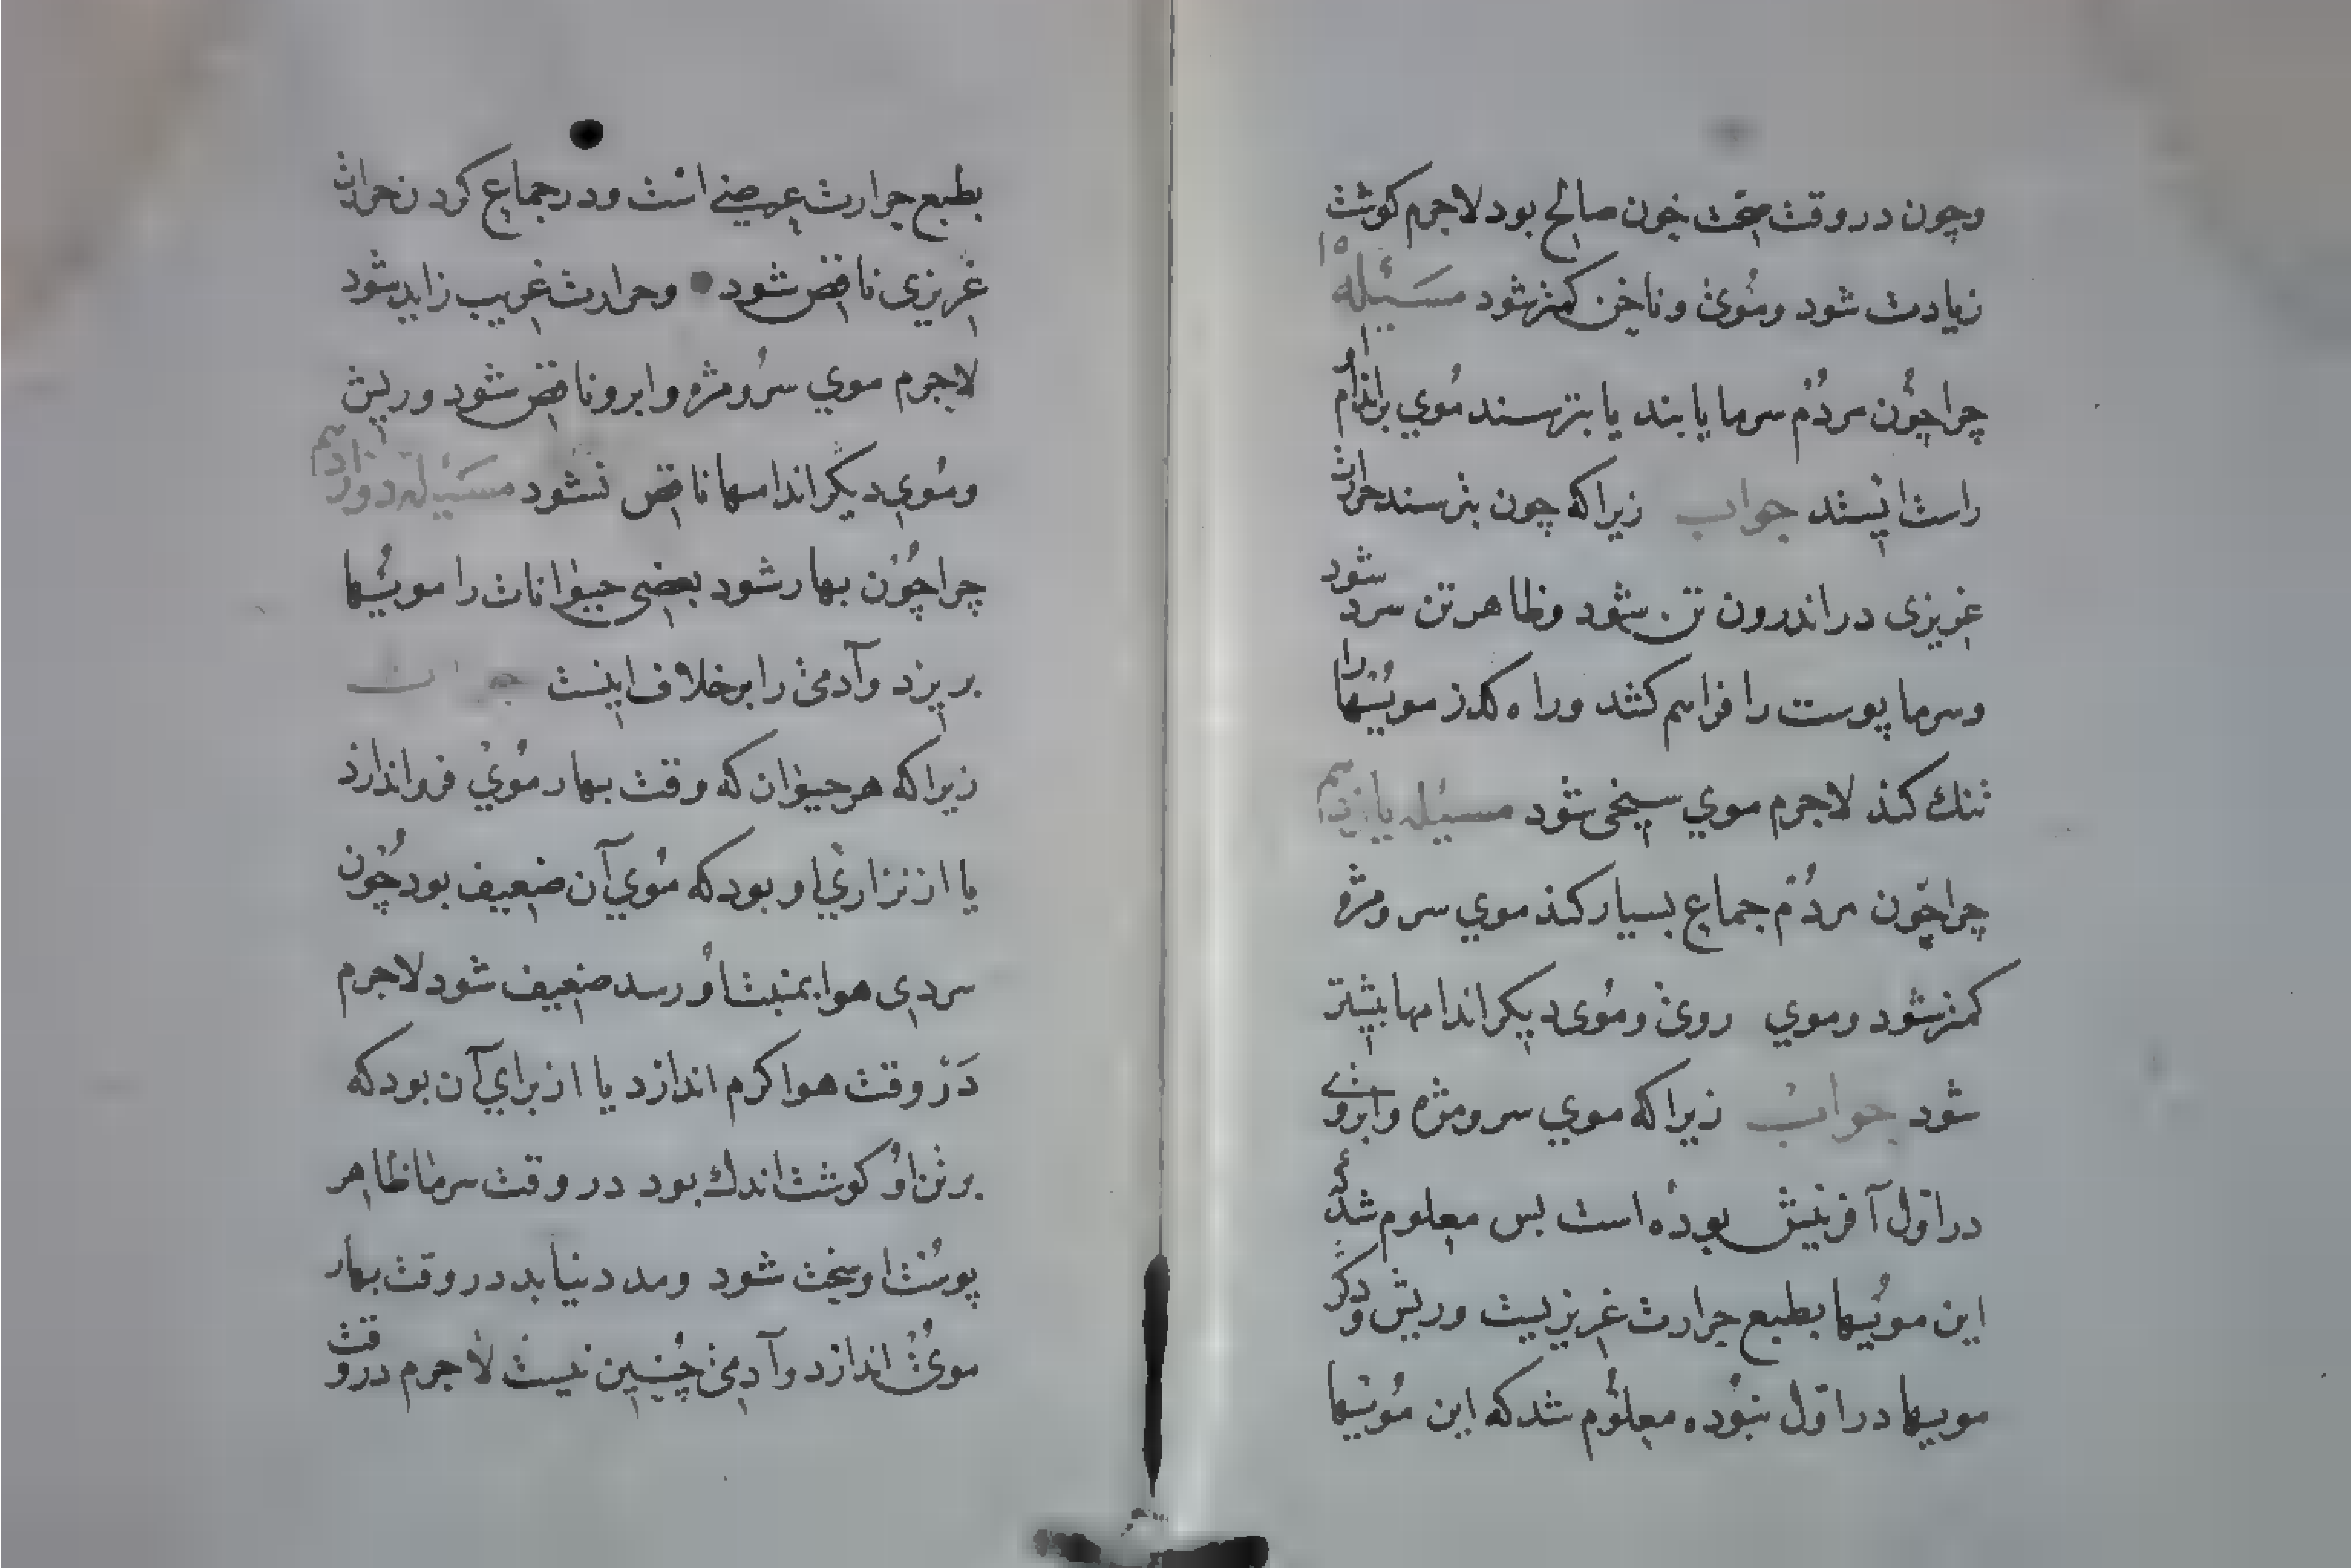 وچون در وقت صحّت خون صالح بود لاجرم کوشت
زیادت شود ومُوئ وناخن کمتر شود مسَئله ۱۵
چراچُون مردُم سرما یابند یا بترسند مُوي براندام
راست ایستد جواب زیراکه چون بترسند حرارت
غریزی در اندرون تن شود وظاهر تن سرد شود
وسرما پوست را فراهم کشد وراه کذر مویُیها را
تنك کند لاجرم موي سیخی شود مسئله یازدهم
چراچون مردُم جماع بسیار کند موي سر ومژه
کمتر شود وموي روئ ومُوی دیکر اندامها بیشتر
شود جواب زیراکه موي سر ومژه وابرو
در اوّل آفرینش بوده است بس معلوم شد که
این موئیها بطبع حرارت غریزیست وریش ودکر
موییها در اوّل نبُوده معلُوم شد که این مُوئیها
بطبع حرارت عرضی است ودر جماع کردن حرارت
غریزی ناقص شود وحرارت غریب زاید شود
لاجرم موي سرُ ومژه وابرو ناقص شود وریش
ومُوي دیکر اندامها ناقص نشود مسَئله دوازدهم
چراچُون بهار شود بعضی حیوانات را موئیها
بریزد وآدمئ را برخلاف اینست جواب
زیراکه هر حیوان که وقت بهار مُويْ فرو اندازد
یا از نزاريْ او بود که مُوي آن ضعیف بود چُون
سردی هوا بمنبت اوُ رسد ضعیف شود لاجرم
دَرْ وقت هوا کرم اندازد یا از براي آن بود که
برتن اوُ کوشت اندك بود در وقت سرما ظاهر
پوسُت او سخت شود ومدد نیابد در وقت بهار
موئش اندازد وآدمئ چُنین نیست لاجرم در وقت